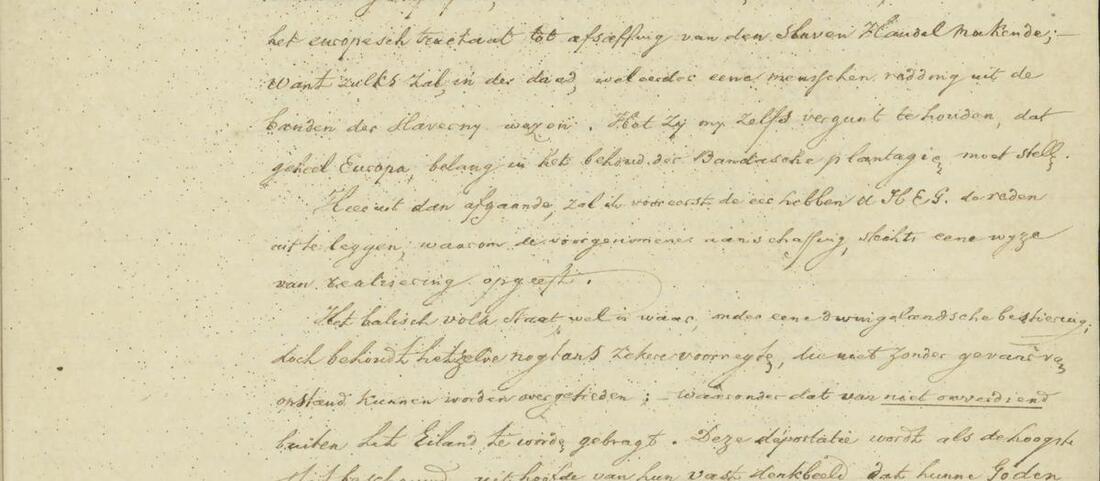 het europesch tractaat tot afsaffing van den Slaven Handel makende; -
want zulks zal in der daad, wel eerder eene menschen redding uit de
banden der Slaverny wezen. Het zij my zelfs vergunt te houden, dat
geheel Europa, belang in het behoud der Bandasche plantagie moet stell.
Hier uit dan afgaande, zal ik voor eerst de eer hebben U HEG. de reden
uit te leggen, waarom de voorgenomene aanschaffing, slechts eene wyze
van realisering opgeeft.
Het balisch volk staat wel is waar, onder eene dwingelandsche bestiering;
doch behoudt hetzelve nogtans zekere voorregte, die niet zonder gevaar van
opstand kunnen worden overgetreden; - waaronder dat van niet onverdiend
buiten het Eiland te worde gebragt. Deze deportatie wordt als de hoogste
uit hoofde van hun vast denkbeeld dat hunne Goden